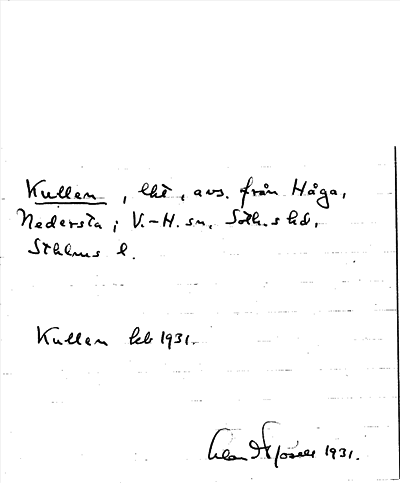 Kullen, lht, avs. från Håga,
Nedersta i V.-H. sn, Soth.s hd,
Sthlms l.
Kullen leb 1931.
1931.